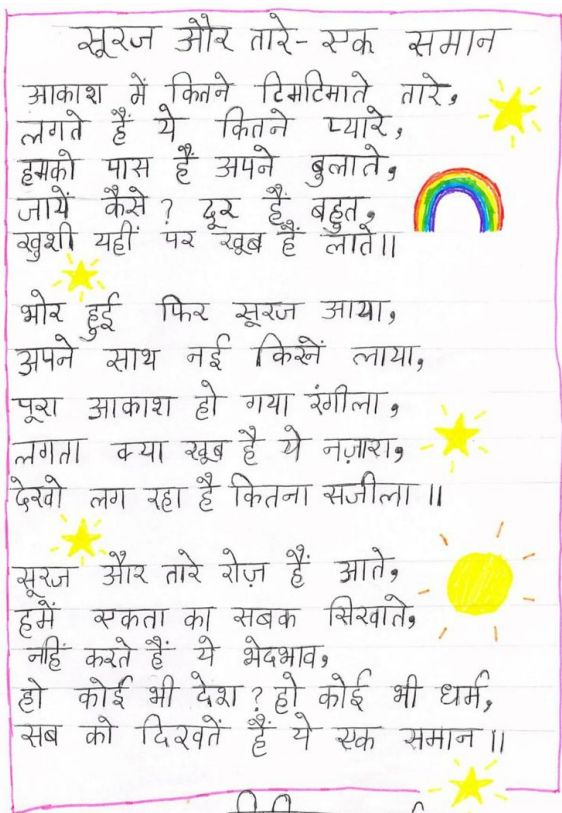 सूरज और तारे- एक समान
आकाश में कितने टिमटिमाते तारे,
लगते हैं ये कितने प्यारे,
हमको पास हैं अपने बुलाते,
जायें कैसे? दूर हैं बहुत,
खुशी यहीं पर खूब हैं लाते॥
भोर हुई फिर सूरज आया,
अपने साथ नई किरनें लाया,
पूरा आकाश हो गया रंगीला,
लगता क्या खूब है ये नज़ारा,
देखो लग रहा है कितना सजीला ॥
सूरज और तारे रोज़ हैं आते,
हमें एकता का सबक सिखाते,
नहिं करते हैं ये भेदभाव,
हो कोई भी देश? हो कोई भी धर्म,
सब को दिखतें हैं ये एक समान ॥